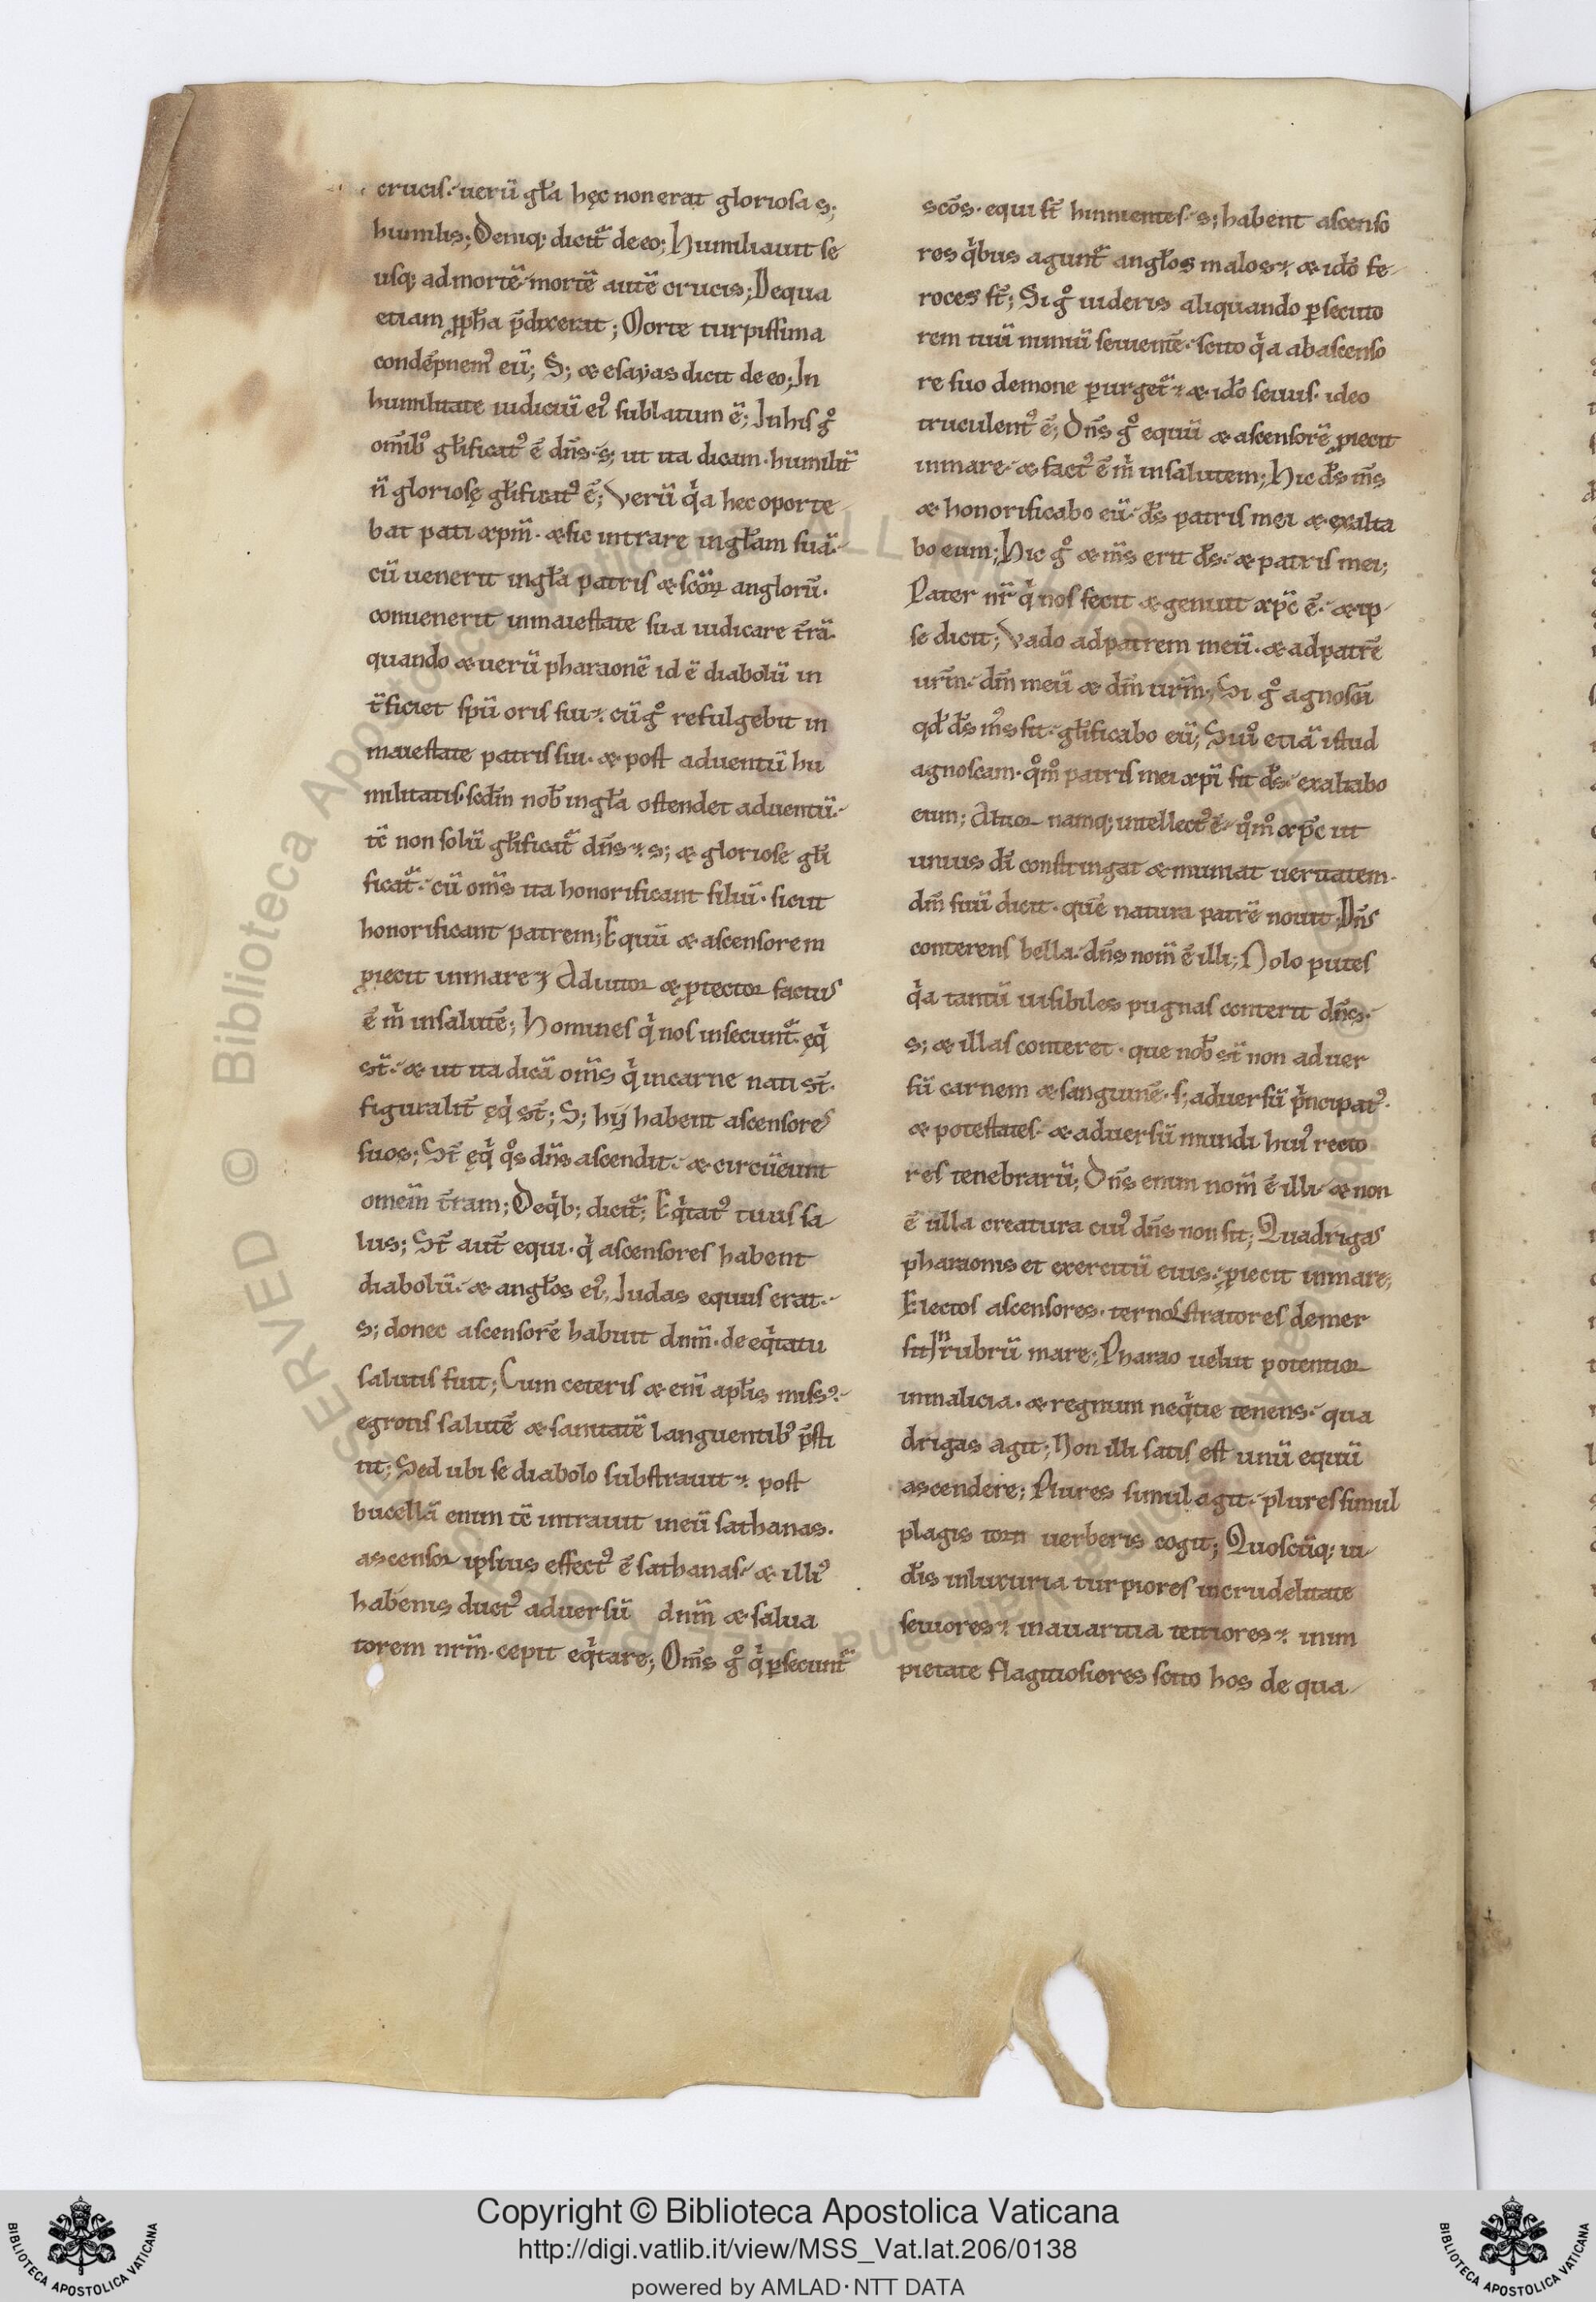 crucis. uerū gl̄a hęc non erat gloriosa s;
humilis; Deniq; dicit᷑ de eo; Humiliauit se
usq; ad mortē mortē autē crucis; De qua
etiam ꝓph̄a p̄dixerat; Morte turpissima
condēpnem᷒ eū; S; & esayas dicit de eo; In
humilitate iudiciū ei᷒ sublatum ē; In his gͦ
om̄ib᷒ gl̄ificat᷒ ē dn̄s. s; ut ita dicam. humilit᷑
n̄ gloriosę gl̄ificat᷒ ē; Verū qͥa hec oporte
bat pati xp̄m. & sic intrare in gl̄am suā.
cū uenerit in gl̄a patris & sc̄oꝝ anglorū.
conuenerit in maiestate sua iudicare t̄rā.
quando & uerū pharaonē id ē diabolū in
t̄ficiet sp̄ū oris sui. cū gͦ refulgebit in
maiestate patris sui. & post aduentū hu
militatis. scd̄m nob̄ in gl̄a ostendet aduentū.
tc̄ non solū gl̄ificat᷑ dn̄s. s; & gloriose gl̄i
ficat᷑. cū om̄s ita honorificant filiū. sicut
honorificant patrem; Equū & ascensorem
ꝓiecit in mare; Adiutor & ꝓtector factus
ē m̍ in salutē; Homines qͥ nos insecunt᷑. eqͥ
st̄. & ut ita dicā om̄s qͥ in carne nati st̄.
figuralit᷑ ęqͥ st̄; S; hij habent ascensores
suos; St̄ ęqͥ qͦs dn̄s ascendit. & circūeunt
omem̄ t̄ram; De qͥb; dicit᷑; Eqͥtat᷒ tuus sa
lus; St̄ aut̄ equi. qͥ ascensores habent
diabolū. & angl̄os ei᷒. Judas equus erat.
s; donec ascensorē habuit dnm̄. de eqͥtatu
salutis fuit; Cum ceteris & eni᷒ apl̄is miss᷒.
egrotis salutē & sanitatē languentib᷒ p̄sti
tit; Sed ubi se diabolo substrauit. post
bucellā enim tc̄ intrauit in eū sathanas.
ascensor ipsius effect᷒ ē sathanas. & illi᷒
habenis duct᷒ aduersū dnm̄ & salua
torem nr̄m. cepit eqͥtare; Om̄s gͦ qͥ ꝑsecunt᷑
sc̄os. equi st̄ hinnientes. s; habent ascenso
ros qͥbus agunt᷑ angl̄os malos. & ido̅ fe
roces st̄; Si gͦ uideris aliquando ꝑsecuto
rem tuū nimiū seuientē. scito qͥa ab ascenso
re suo demone ꝑurget᷑. & ido̅ seuus. ideo
truculent᷒ ē; Dn̄s gͦ equū & ascensorē ꝓiecit
in mare. & fact᷒ ē m̍ in salutem; Hic d̄s m̄s
& honorificabo eū. d̄s patris mei & exalta
bo eum; Hic gͦ & m̄s erit d̄s. & patris mei;
Pater nr̄ qͥ nos fecit & genuit xp̄c ē. & ip
se dicit; Vado ad patrem meū. & ad patrē
ur̄m. dm̄ meū & dm̄ ur̄m; Si gͦ agnoscā
qd̄ d̄s m̄s sit. gl̄ificabo eū; Siuͦ etiā istud
agnoscam. qͦmͦ patris mei xp̄i sit d̄s. exaltabo
eum; Altior namq; intellect᷒ ē. qͦmͦ xp̄c ut
unius d̄i constringat & muniat ueritatem.
dm̄ suū dicit. quē natura patrē nouit. Dn̄s
conterens bella. dn̄s nom̄ ē illi; Nolo putes
qͥa tantū uisibiles pugnas conterit dn̄s.
s; & illas conteret. que nob̄ st̄ non aduer
sū carnem & sanguinē. s; aduersū p̍ncipat᷒.
& potestates. & aduersū mundi hui᷒ recto
res tenebrarū; Dn̄s enim nom̄ ē illi. & non
ē ulla creatura cui᷒ dn̄s non sit; Quadrigas
pharaonis et exercitū eius. ꝓiecit in mare;
Electos ascensores. ternos stratores demer
sit in rubrū mare; Pharao uelut potentior
in malicia. & regnum neqͥtie tenens. qua
drigas agit; Non illi satis est unū equū
ascendere; Plures simul agit. plures simul
plagis torti uerberis cogit; Quoscūq; ui
d̄is in luxuria turpiores in crudelitate
seuiores. in auaritia tetriores. in im
pietate flagitiosiores scito hos de qua
Copyright © Biblioteca Apostolica Vaticana
http://digi.vatlib.it/view/MSS_Vat.lat.206/0138
powered by AMLAD·NTT DATA
BIBLIOTECA APOSTOLICA VATICANA
BIBLIOTECA APOSTOLICA VATICANA